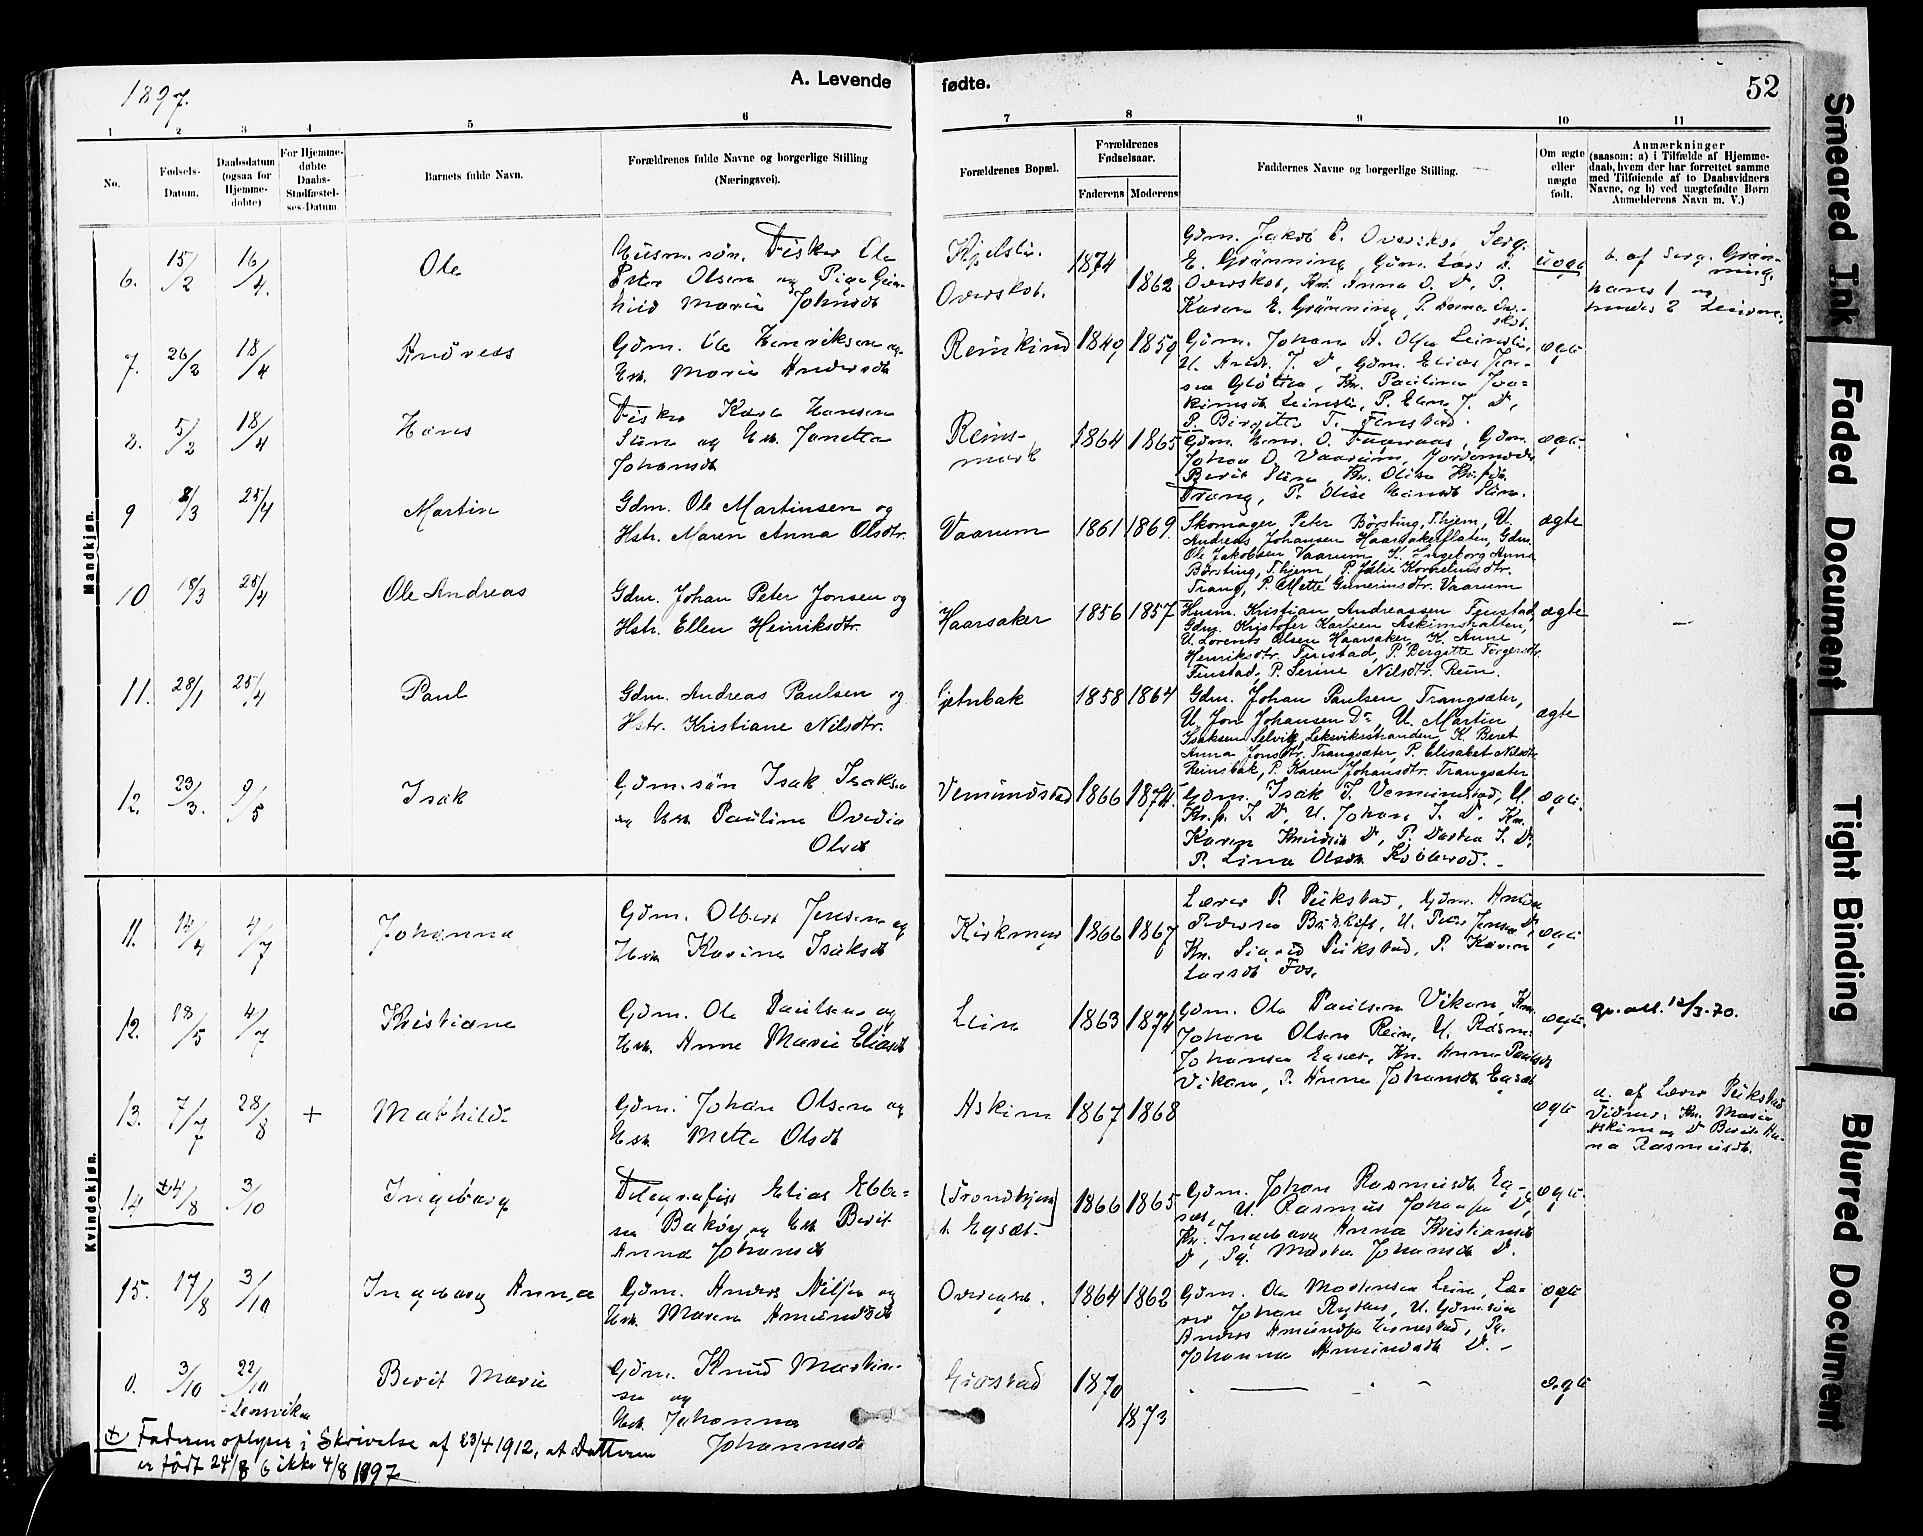 1897.
A. Levende fødte.
52
1 2 3 4 5 6 7 8 9 10 11
No.
Fødsels-
Datum.
Daabsdatum
(ogsaa for
Hjemme-
døbte)
For Hjemme-
døbte
Daabs-
Stadfæstel-
ses-Datum
Barnets fulde Navn.
Forældrenes fulde Navne og borgerlige Stilling
(Næringsvei).
Forældrenes Bopæl.
Forældrenes
Fødselsaar.
Faderens Moderens
Faddernes Navne og borgerlige Stilling.
Om ægte
eller
uægte
født.
Anmærkninger
(saasom: a) i Tilfælde af Hjemme-
daab, hvem der har forrettet samme
med Tilføiende af to Daabsvidners
Navne, og b) ved uægtefødte Børn
Anmelderens Navn m. V.)
Mandkjøn.
6. 15/2 16/4. Ole
Husm. søn, Fisker Ole
Peter Olsen og Pige Gun-
hild Marie Johnsdt
Overskot.
1874
1862
Gdm. Jakob P. Overskot, Serg.
E. Grønning, Gdm. Lars O.
Overskot, Kr. Anna O. D, P.
Karen E. Grønning, P.
uægte
b. af Serg. Grøn-
ning.
hans 1 og
hendes 2
7. 26/2 18/4 Andreas
Gdm. Ole Henriksen og
Hst. Marie Andersdt
Reinkind
1849 1859
Gdm. Johan A. Olsen Leinsli,
U. Andr. J. D, Gdm. Elias Jen-
sen, Kr. Pauline Joa-
kimsdt Leinsli, P. Elen J. D,
P. Birgitte T. Finstad.
ægte
8. 5/2 18/4 Hans
Fisker Karl Hansen
Stene og Hst. Janetta
Johansdt
Reins-
mark
1864 1865
Gdm. O., Gdm.
Johan O. Vaarum, Jordemoder
Berit Stene, Kr. Olise
Trang, P. Olise Hansdt Stene.
ægte
9 8/3 25/4 Martin
Gdm. Ole Martinsen og
Hstr. Maren Anna Olsdtr.
Vaarum
1861 1869.
Skomager Peter Børsting, T.hjem, U.
Andreas Johansen Haarsakerflaten, Gdm.
Ole Jakobsen Vaarum, K. Ingeborg Anna
Børsting, T.hjem, P. Julie Kornelius dtr.
Trang, P. Mette Gunerius dtr. Vaarum
ægte
10 18/3 25/4 Ole Andreas
Gdm. Johan Peter Jonsen og
Hstr. Ellen Heinriksdtr.
Haarsaker
1856 1857
Husm. Kristian Andreassen Finstad,
Gdm. Kristofer Karlsen Askimshalten,
U. Lorents Olsen Haarsaker, K. Anne
Henriksdtr. Finstad, P. Bergitte Torgersdtr.
Finstad, P. Serine Nilsdtr. Rein.
ægte
–
11. 28/1 25/4 Paul
Gdm. Andreas Paulsen og
Hstr. Kristiane Nilsdtr.
Gjetnbak
1858 1864
Gdm. Johan Paulsen Trangsæter,
U. Jon Johansen Do, U. Martin
Isaksen Selvig, Leksvikstranden, K. Beret
Anna Jonsdtr. Trangsæter, P. Elisabet Nilsdtr.
Reinsbak, P. Karen Johansdtr. Trangsæter
ægte
12. 23/3. 9/5 Isak
Gdm.søn Isak Isaksen
og Hst. Pauline Ovedia
Olsdt
Vemundstad
1866 1874.
Gdm. Isak I. Vemundstad, U.
I. D, U. Johan I. D. Kr.
Karen Knudsdt D, P. Dortea I. D.
P. Lina Olsdt
ægte.
Kvindekjøn.
11. 14/4 4/7 Johanna
Gdm. Olbert Jensen og
Hst. Karina Isaksdt
1866 1867
Lærer P. Rikstad, Gdm.
Pedersen, U. Peter Jensen D,
Kr. Sigrid Rikstad, P. Karen
Larsdt Fos.
ægte
12. 18/5 4/7 Kristiane
Gdm. Ole Paulsen og
Hst. Anne Marie Eliasdt
Lein
1863 1874
Gdm. Ole Paulsen Vikan,
Johan Olsen Rein, U. Rasm.
Johansen Egset, Kr. Anne Paulsdt
Vikan, P. Anna Johansdt Egset
ægte.
av. att. 12/3-70.
13. 7/7 28/8 + Mathilde
Gdm. Johan Olsen og
Hst. Metta Olsdt
Askim
1867 1868
ægte
a. af Lærer Rikstad
Vidner: Kr. Marie
Askim og D Berit An-
na Rasmusdt.
14 ±4/8 3/10 Ingeborg
Telegrafist Elias Ebbe-
sen Bakøy og Hst. Berit
Anna Johansdt
(Trondhjem)
t. Egset.
1866 1865
Gdm. Johan Rasmusdt Eg-
set, U. Rasmus Johansen D,
Kr. Ingeborg Anna Kristiansdt
D, Pg. Marta Johansdt D.
ægte.
15. 17/8 3/10 Ingeborg Anna
Gdm. Anders Nilsen og
Hst. Maren Amundsdt
Overegset.
1864 1862
Gdm. Ole Mortensen Lein, Læ-
rer Johan, U. Gdmsøn
Anders Amundsen, Pg.
Johanna Amundsdt D. –
ægte
0. 3/10 22/10 Berit Marie
Lensviken
Gdm. Knud Martin-
sen og
Hst. Johanna
Johannesdt
1870
1873
ægte
± Faderen oplyser i Skrivelse af 23/4 1912, at Datteren
er født 24/8 o ikke 4/8 1897
Smeared Ink
Faded Document
Tight Binding
Blurred Document